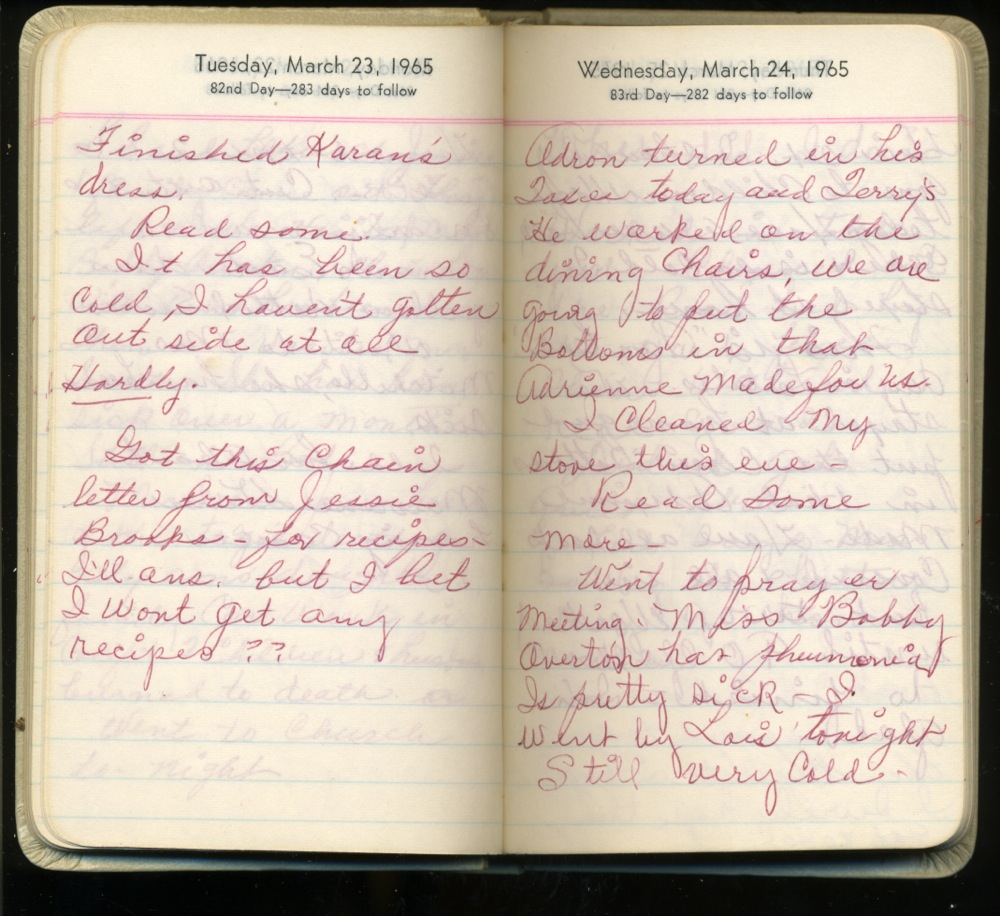 Tuesday, March 23, 1965
82nd Day—283 days to follow
Finished Karan's
dress.
Read some.
It has been so
Cold, I haven't gotten
out side at all
Hardly.
Got this Chain
letter from Jessie
Brooks - for recipes-
I'll ans. but I bet
I Wont get any
recipes ??
Wednesday, March 24, 1965
83rd Day—282 days to follow
Adron turned in his
Taxes today and Terry's
He worked on the
dining Chairs, we are
going to put the
Bottoms in that
Adrienne Made for us.
I Cleaned My
stove this eve -
Read Some
more -
Went to pray er
Meeting. Miss Bobby
Overton has pheumonia
Is pretty sick - I
went by Lois' tonight
Still very Cold -